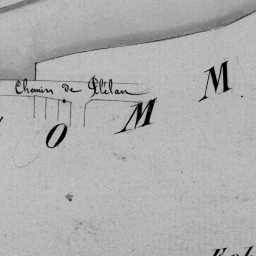 Chemin de Plélan
O M M